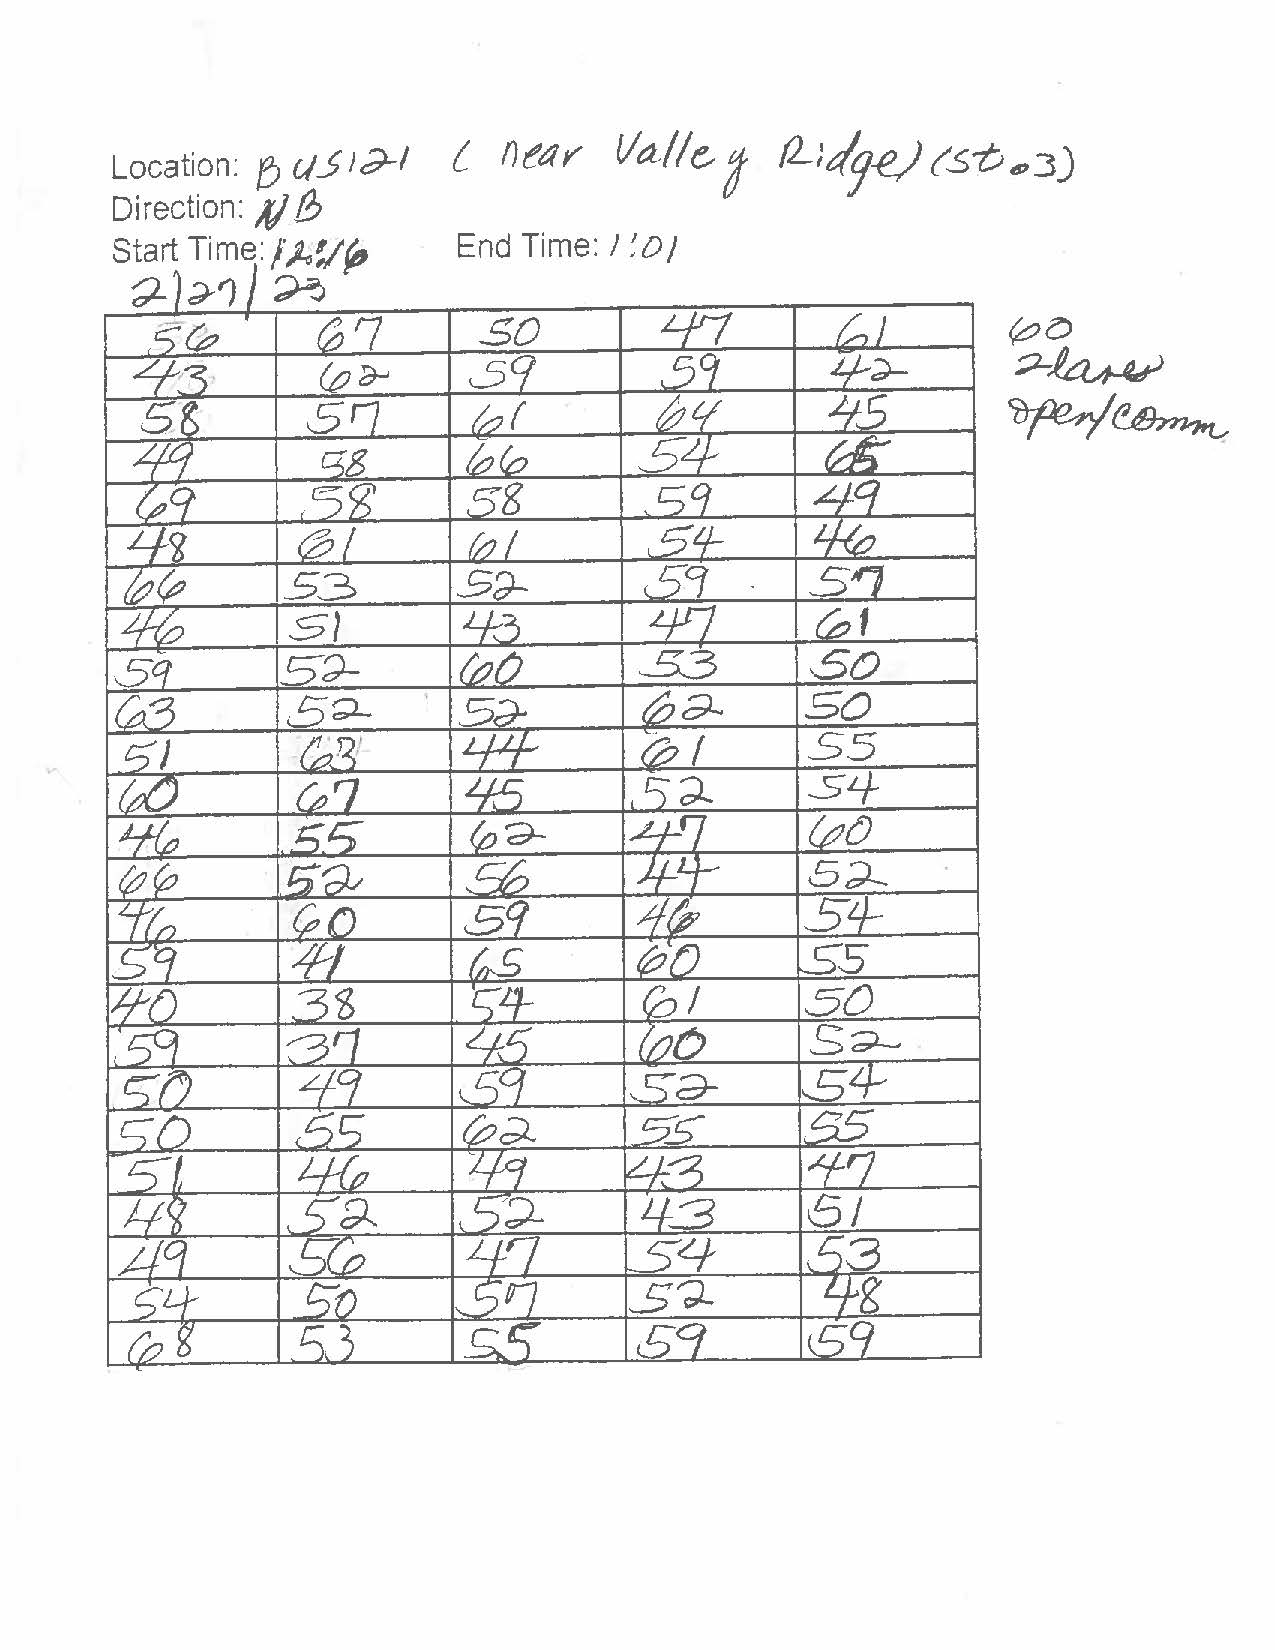 Location: BUS121 ( near Valley Ridge) (St. 3)
Direction: NB
Start Time: 12:46 End Time: 1:01
2/27/23
56 67 50 47 61 60
43 62 59 59 42 2 lanes
58 57 61 64 45 open/comm
49 58 66 54 65
69 58 58 59 49
48 61 61 54 46
66 53 52 59 57
46 51 43 47 61
59 52 60 53 50
63 52 52 62 50
51 63 44 61 55
60 67 45 52 54
46 55 62 47 60
66 52 56 44 52
46 60 59 46 54
59 41 65 60 55
40 38 54 61 50
59 37 45 60 52
50 49 59 52 54
50 55 62 55 55
51 46 49 43 47
48 52 52 43 51
49 56 47 54 53
54 50 57 52 48
68 53 55 59 59